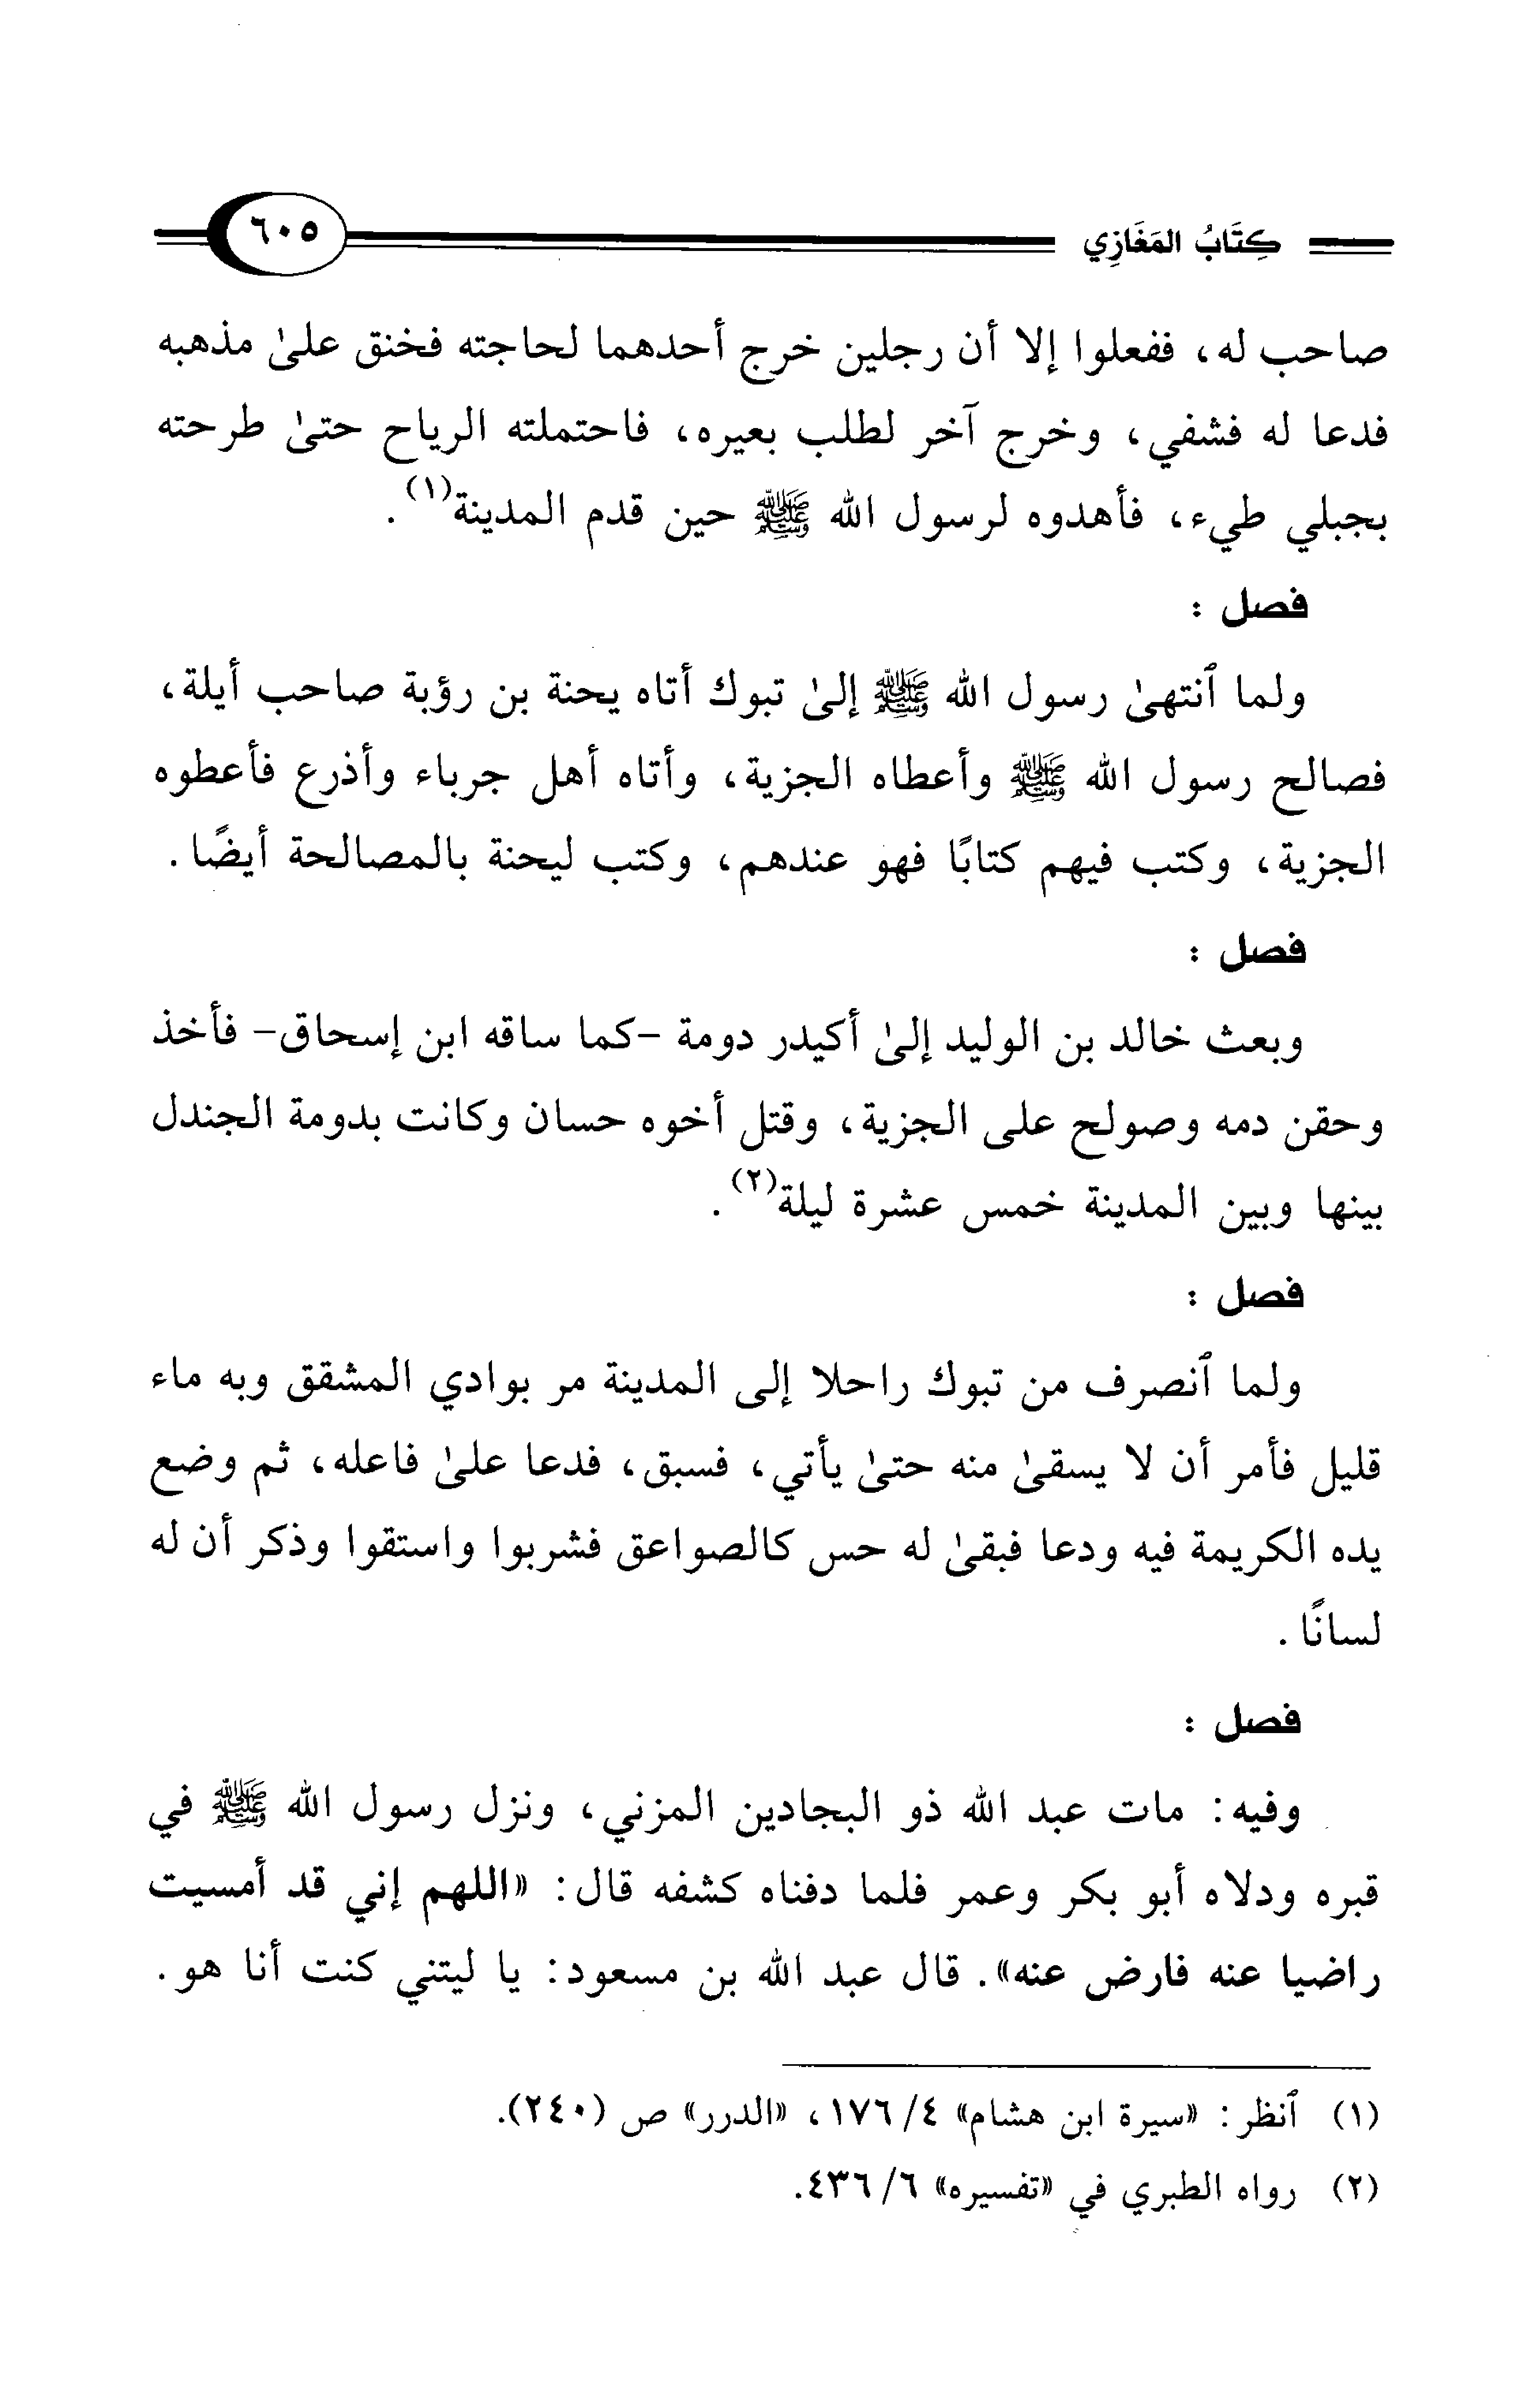 كِتَابُ المَغَازِي ٦٠٥
صاحب له، ففعلوا إلا أن رجلين خرج أحدهما لحاجته فخنق علىٰ مذهبه
فدعا له فشفي، وخرج آخر لطلب بعيره، فاحتملته الرياح حتىٰ طرحته
بجبلي طيء، فأهدوه لرسول الله ﷺ حين قدم المدينة(١).
فصل :
ولما ٱنتهىٰ رسول الله ﷺ إلىٰ تبوك أتاه يحنة بن رؤبة صاحب أيلة،
فصالح رسول الله ﷺ وأعطاه الجزية، وأتاه أهل جرباء وأذرع فأعطوه
الجزية، وكتب فيهم كتابًا فهو عندهم، وكتب ليحنة بالمصالحة أيضًا.
فصل :
وبعث خالد بن الوليد إلىٰ أكيدر دومة -كما ساقه ابن إسحاق- فأخذ
وحقن دمه وصولح على الجزية، وقتل أخوه حسان وكانت بدومة الجندل
بينها وبين المدينة خمس عشرة ليلة(٢).
فصل :
ولما ٱنصرف من تبوك راحلا إلى المدينة مر بوادي المشقق وبه ماء
قليل فأمر أن لا يسقىٰ منه حتىٰ يأتي، فسبق، فدعا علىٰ فاعله، ثم وضع
يده الكريمة فيه ودعا فبقىٰ له حس كالصواعق فشربوا واستقوا وذكر أن له
لسانًا.
فصل :
وفيه: مات عبد الله ذو البجادين المزني، ونزل رسول الله ﷺ في
قبره ودلاه أبو بكر وعمر فلما دفناه كشفه قال: «اللهم إني قد أمسيت
راضيا عنه فارض عنه». قال عبد الله بن مسعود: يا ليتني كنت أنا هو.
(١) ٱنظر: «سيرة ابن هشام» ٤/ ١٧٦، «الدرر» ص (٢٤٠).
(٢) رواه الطبري في «تفسيره» ٦/ ٤٣٦.